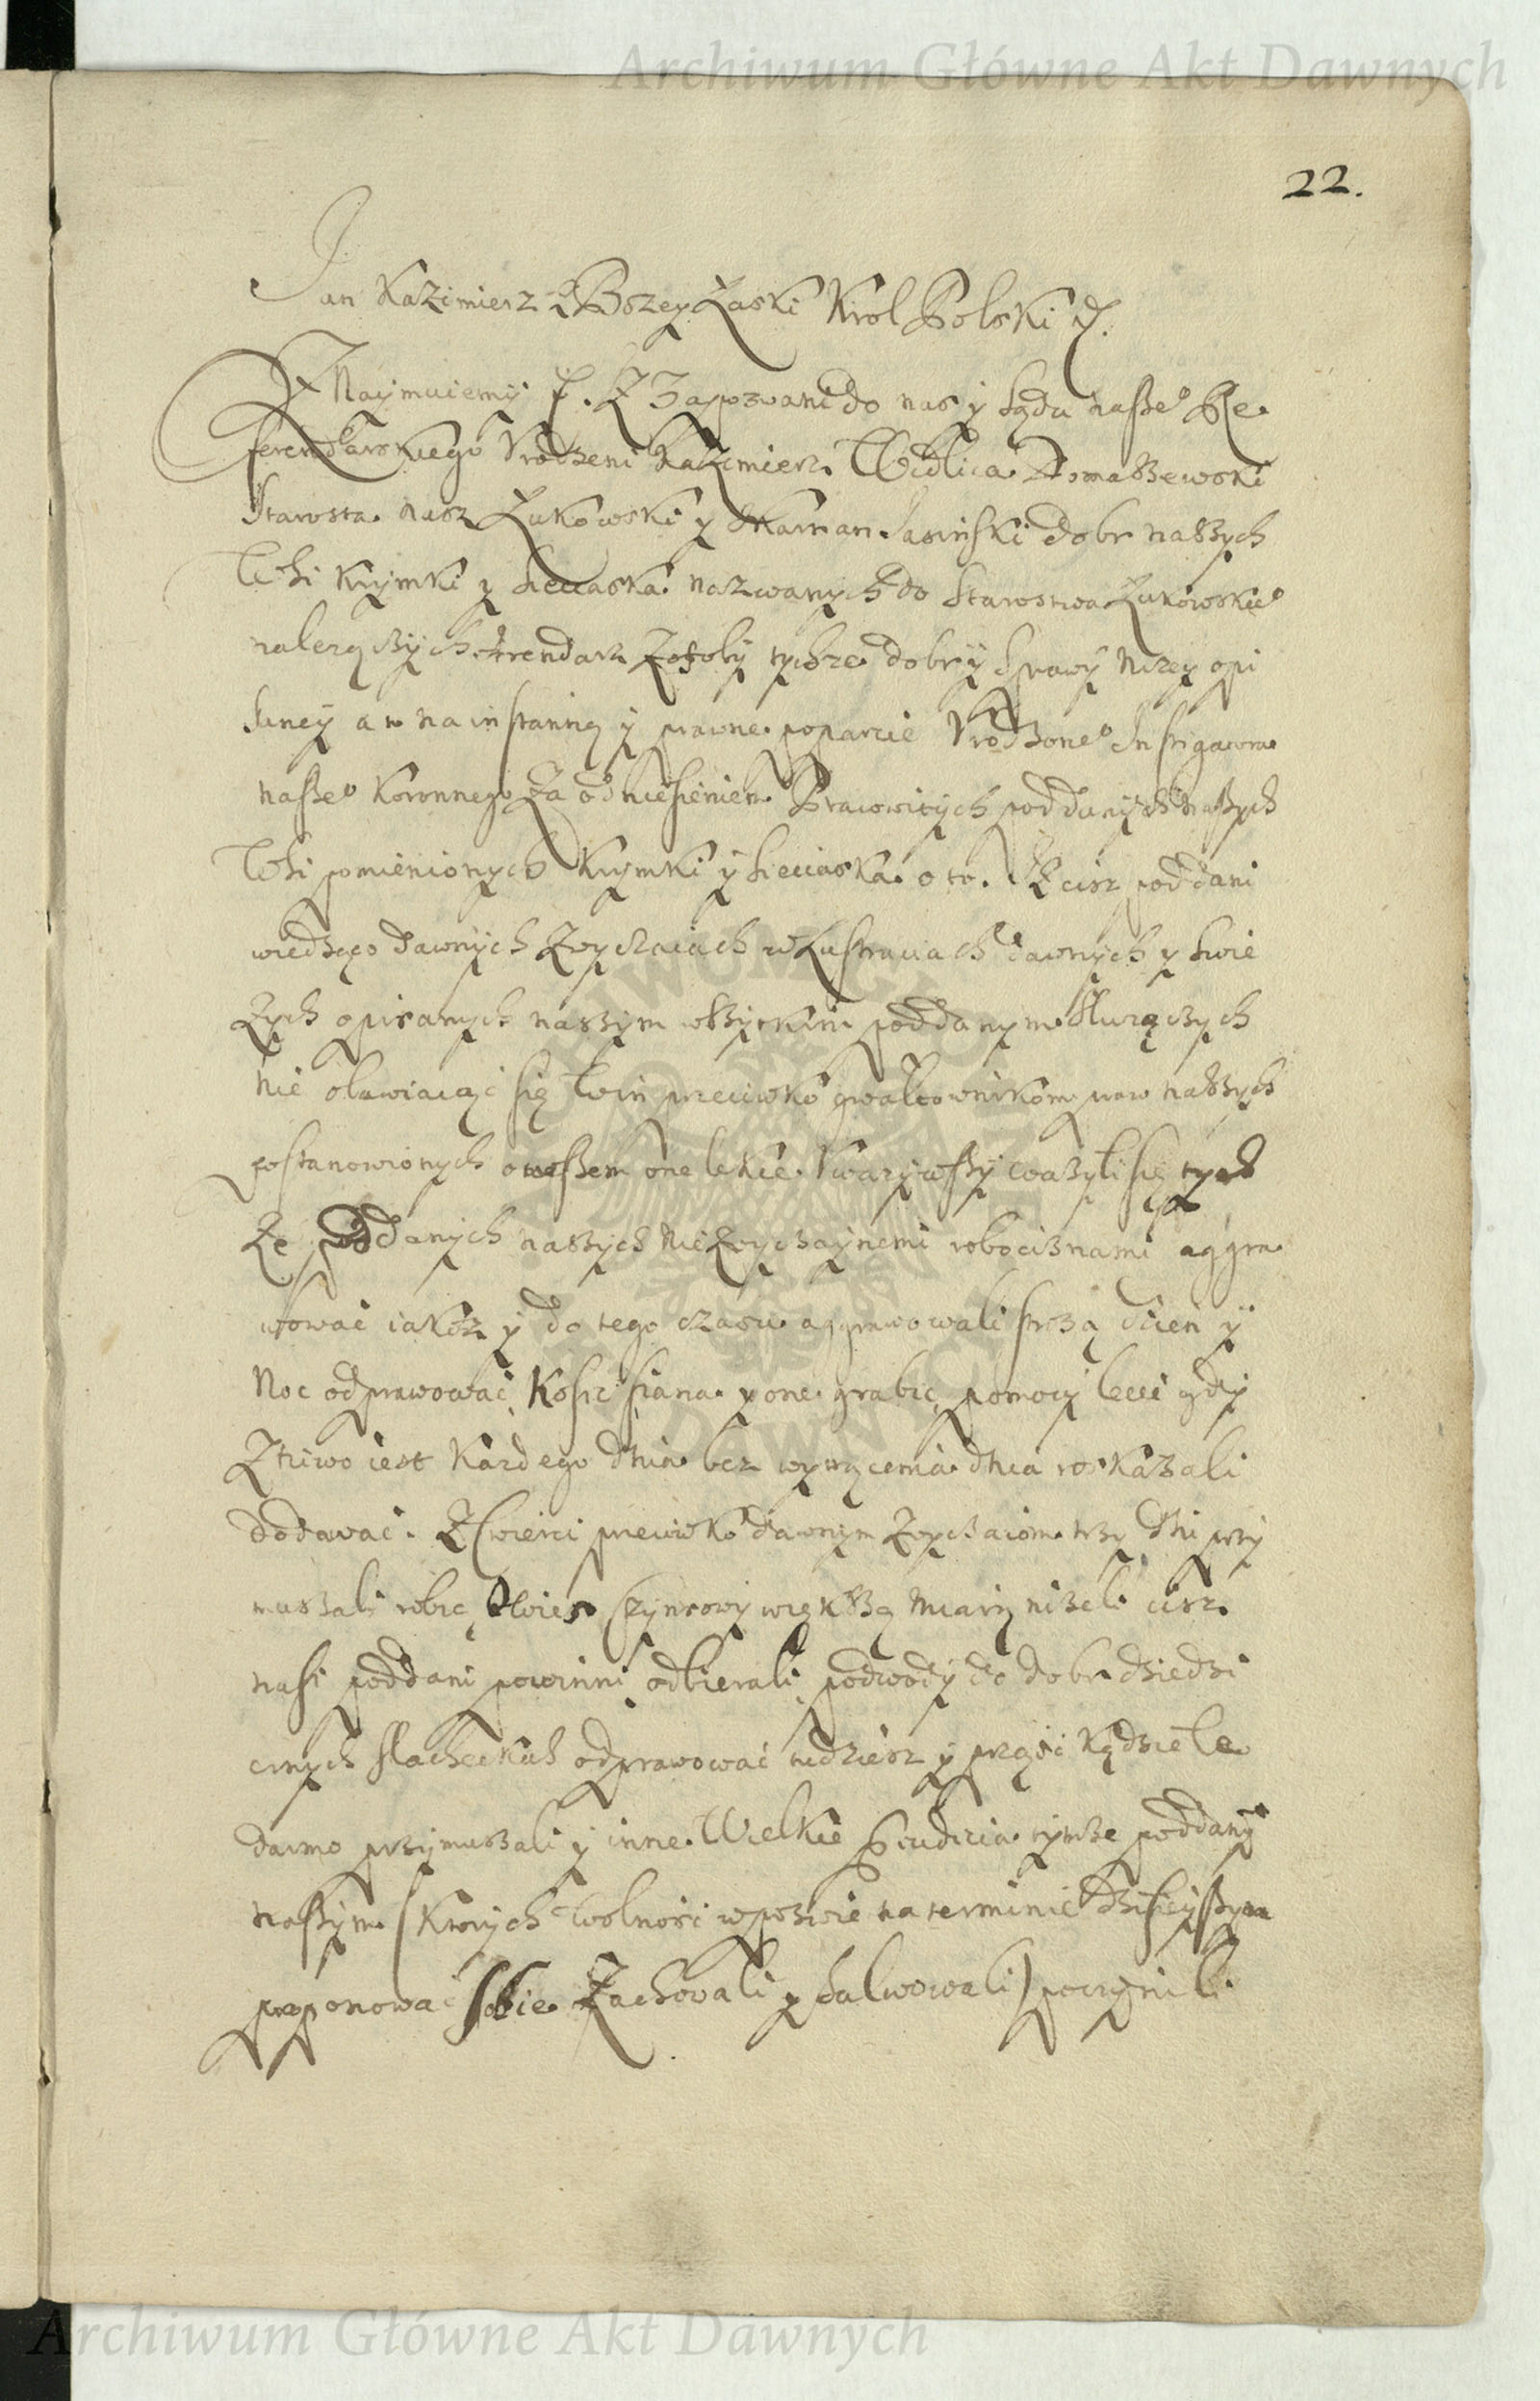 Archiwum Główne Akt Dawnych
22.
Jan Kazimierz z Bozey Łaski Krol Polski &.
Oznaymuiemÿ &. Iz zapozwani do nas y Sądu nasse° Re
ferendarskiego Vrodzeni Kazimierz Domaszewski
Starosta nasz Łukowski y Marcian Jasinski dobr naszych
Wsi Krymki y Sieciaska nazwanych do Starostwa Łukowskie°
nalezących Arendarz z osobÿ tychze dobr ÿ sprawÿ nizey opi
saneÿ a to na instantią ÿ prawne poparcie Vrodzone° Instigatora
nasse° Koronnego za odniesieniem Pracowitych poddanÿch naszych
Wsi pomienionych Krymki ÿ Sieciaska o to. Iz cisz poddani
wedługo dawnÿch zwyczaiach w Lustraciach dawnych y swie
zych opisanych naszym wszystkim poddanym sluzączych
nie obawiaiąc się win przeciwko gwałtownikom praw naszych
postanowionych owossem one lekce vwazÿwszÿ wazÿli się tych
ze poddanych naszych niezwyczaÿnemi robociznami aggra
wowac iakosz y do tego czasu aggrawowali strozą dzien ÿ
Noc odprawowac, Kosic siana y one grabic, pomocÿ lecie gdy
Zniwo iest kazdego dnia bez wyięcenia dnia roskazali
dodawac. Z Cwierci przeciwko dawnym zwyczaiom trzy dni przÿ
muszali robic, Owies czynszowy większą miarą nizeli cisz
nasi poddani powinni odbierali, podwodÿ do dobr dziedzi
cznych slacheckich odprawowac tudziesz ÿ prząsc kądziele
darmo przÿmuszali ÿ inne Wielkie Praeiudicia tÿmze poddanÿ
naszÿm (ktorych wolnosci w pozwie na terminie dzisieÿszym
proponowac sobie zachowali y salwowali) poczynili
Archiwum Główne Akt Dawnych